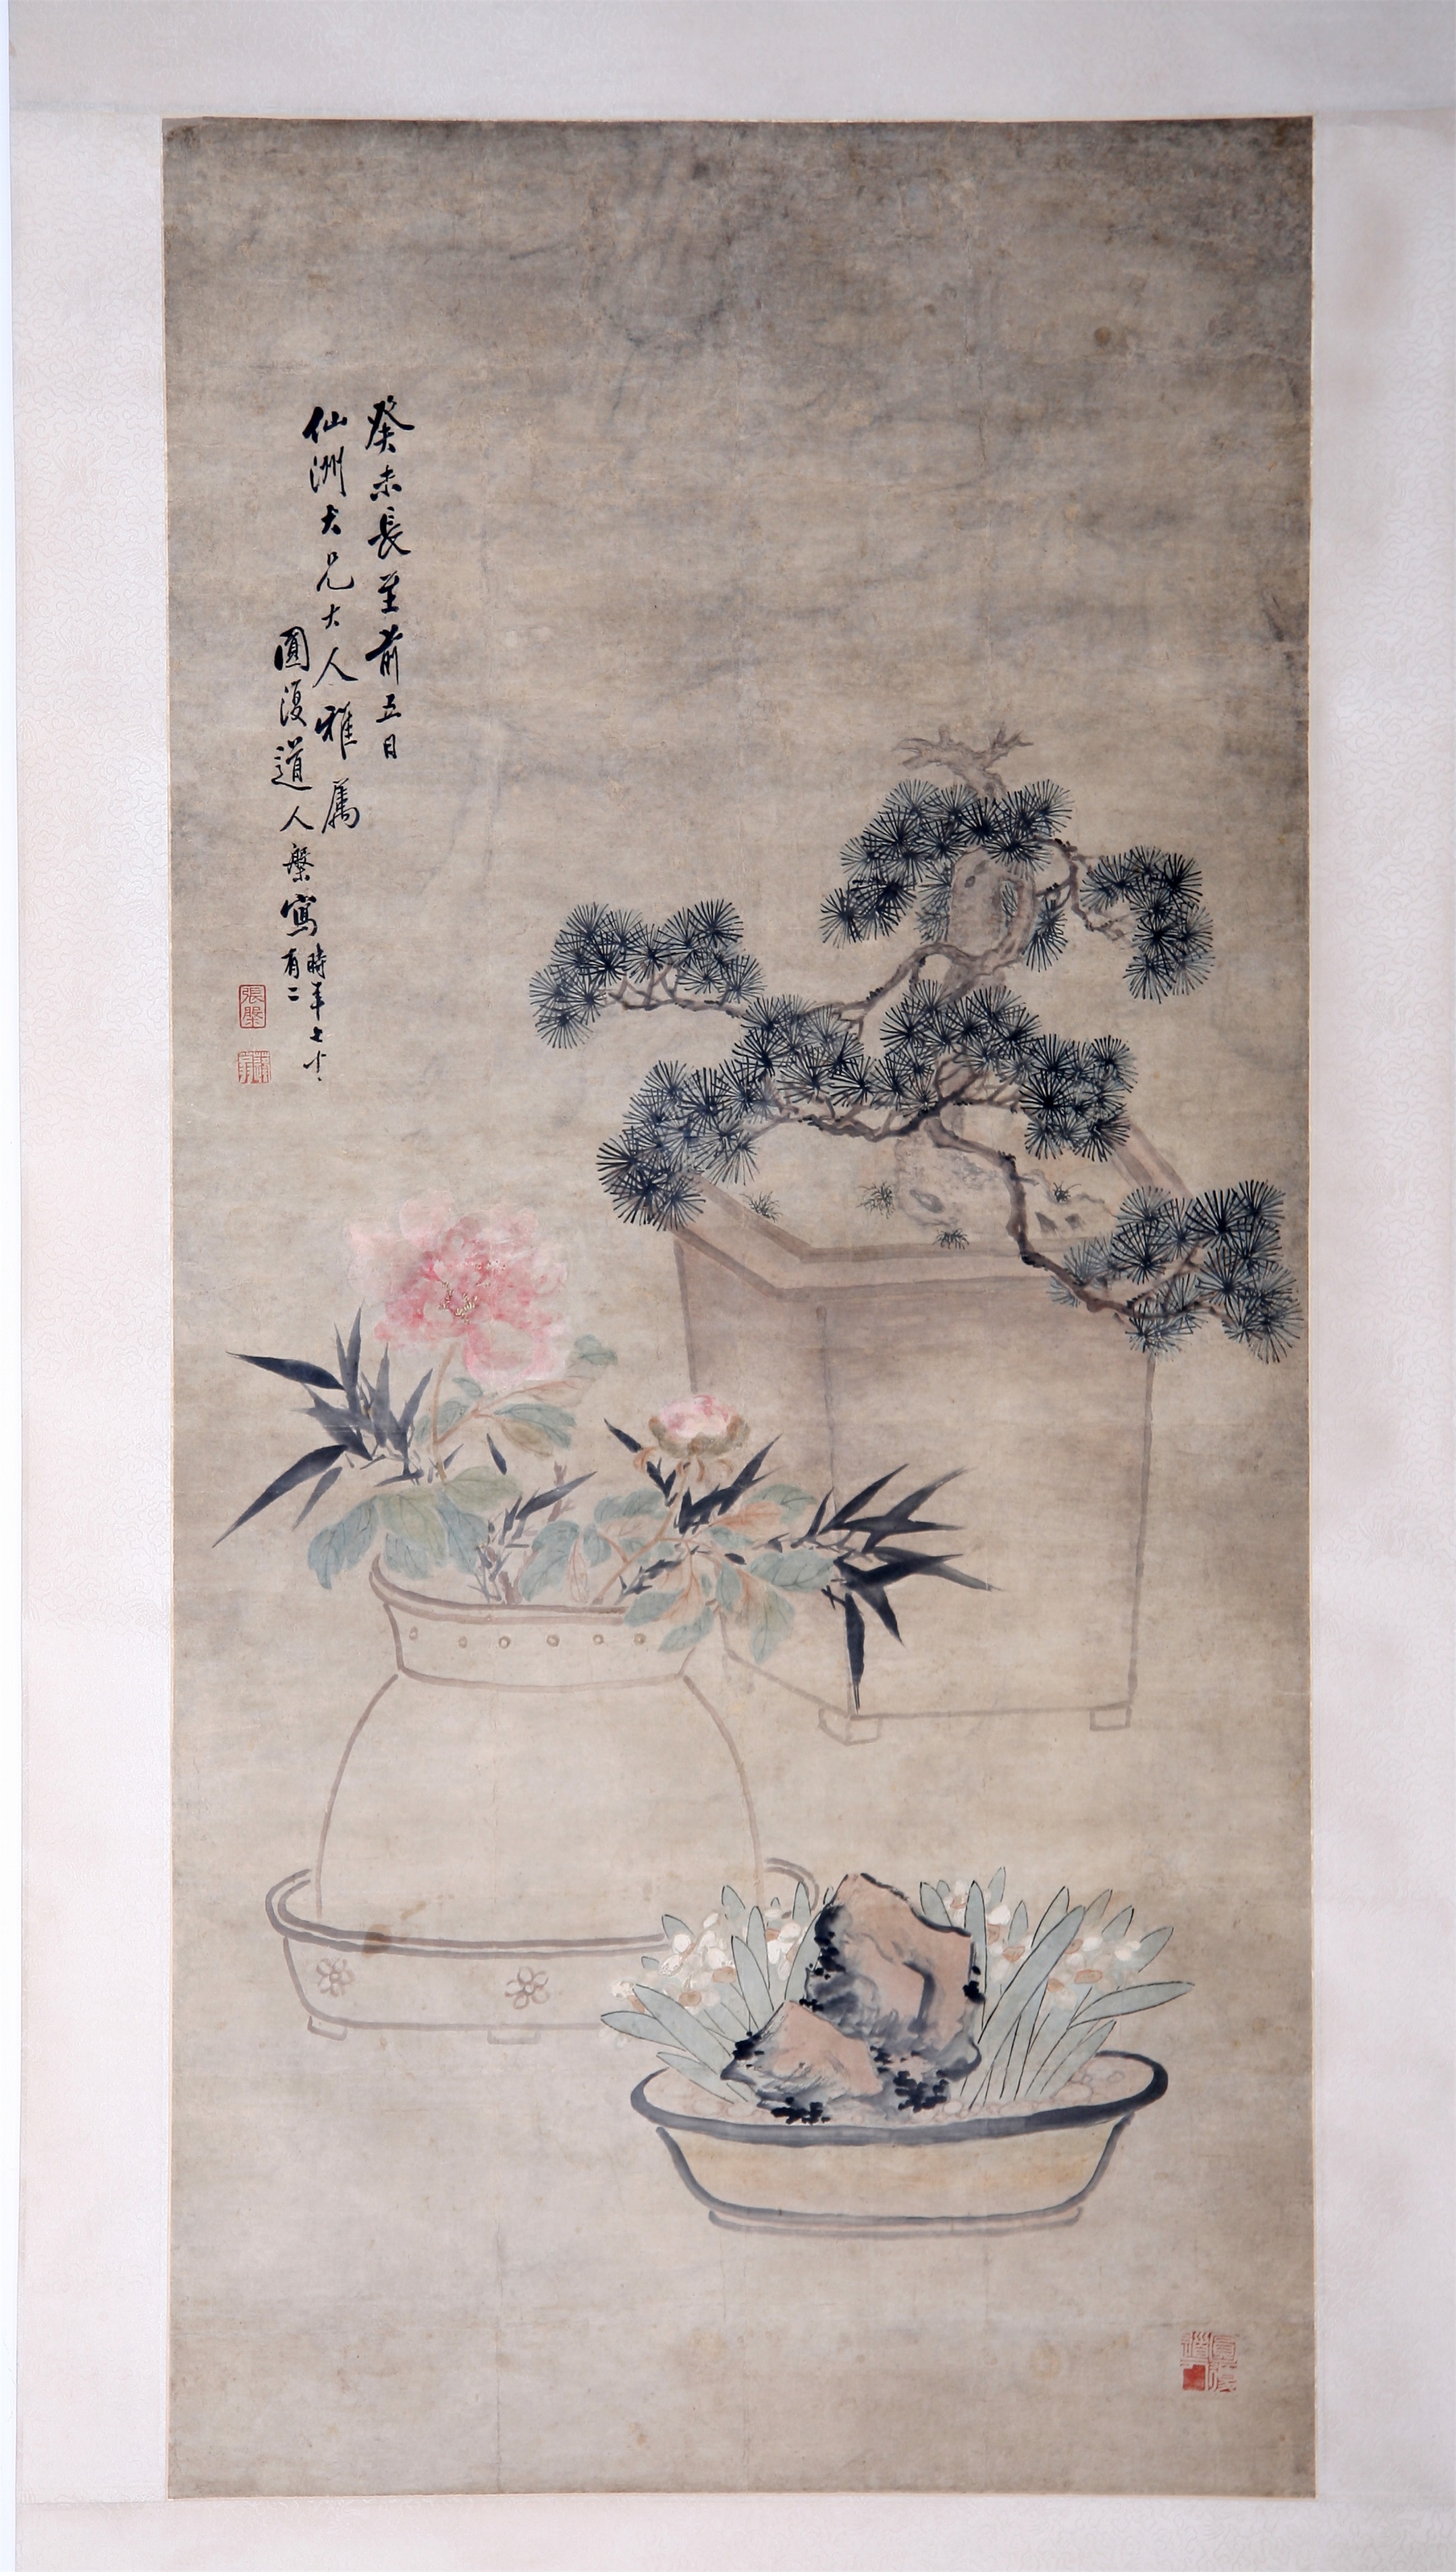 癸未長至前五日
仙洲大兄大人雅屬
圓復道人槃寫時年七十
有二
張槃